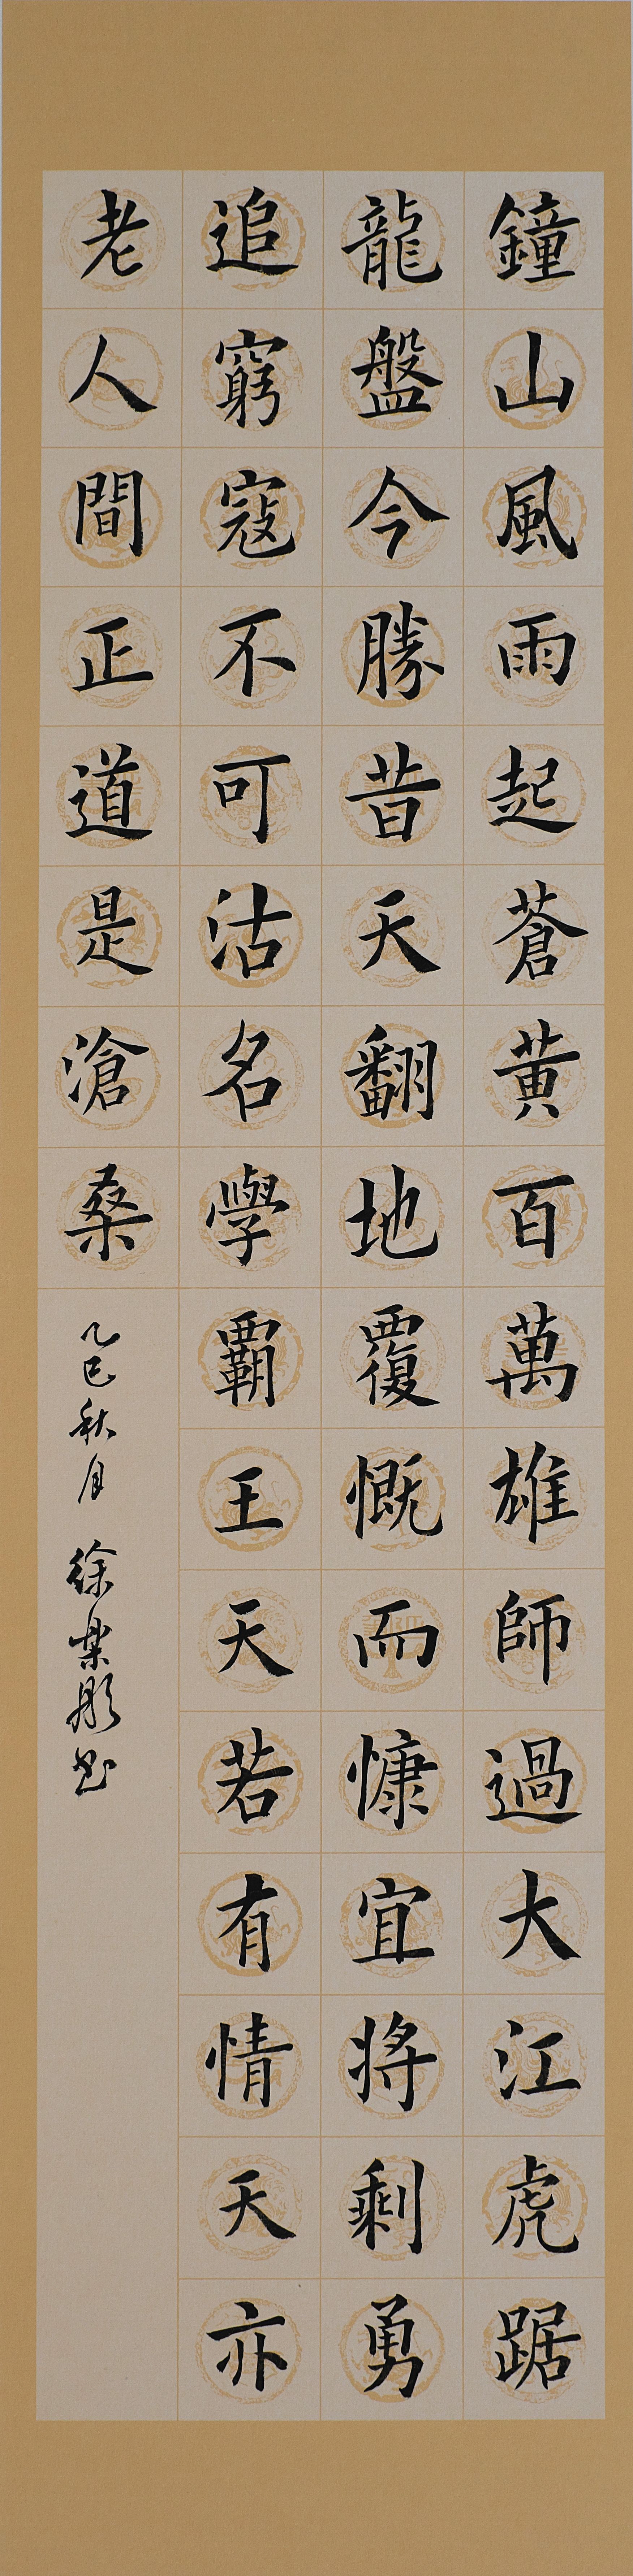 鐘山風雨起蒼黃百萬雄師過大江虎踞
龍盤今勝昔天翻地覆慨而慷宜將剩勇
追窮寇不可沽名學霸王天若有情天亦
老人間正道是滄桑
乙巳秋月 徐業彤书